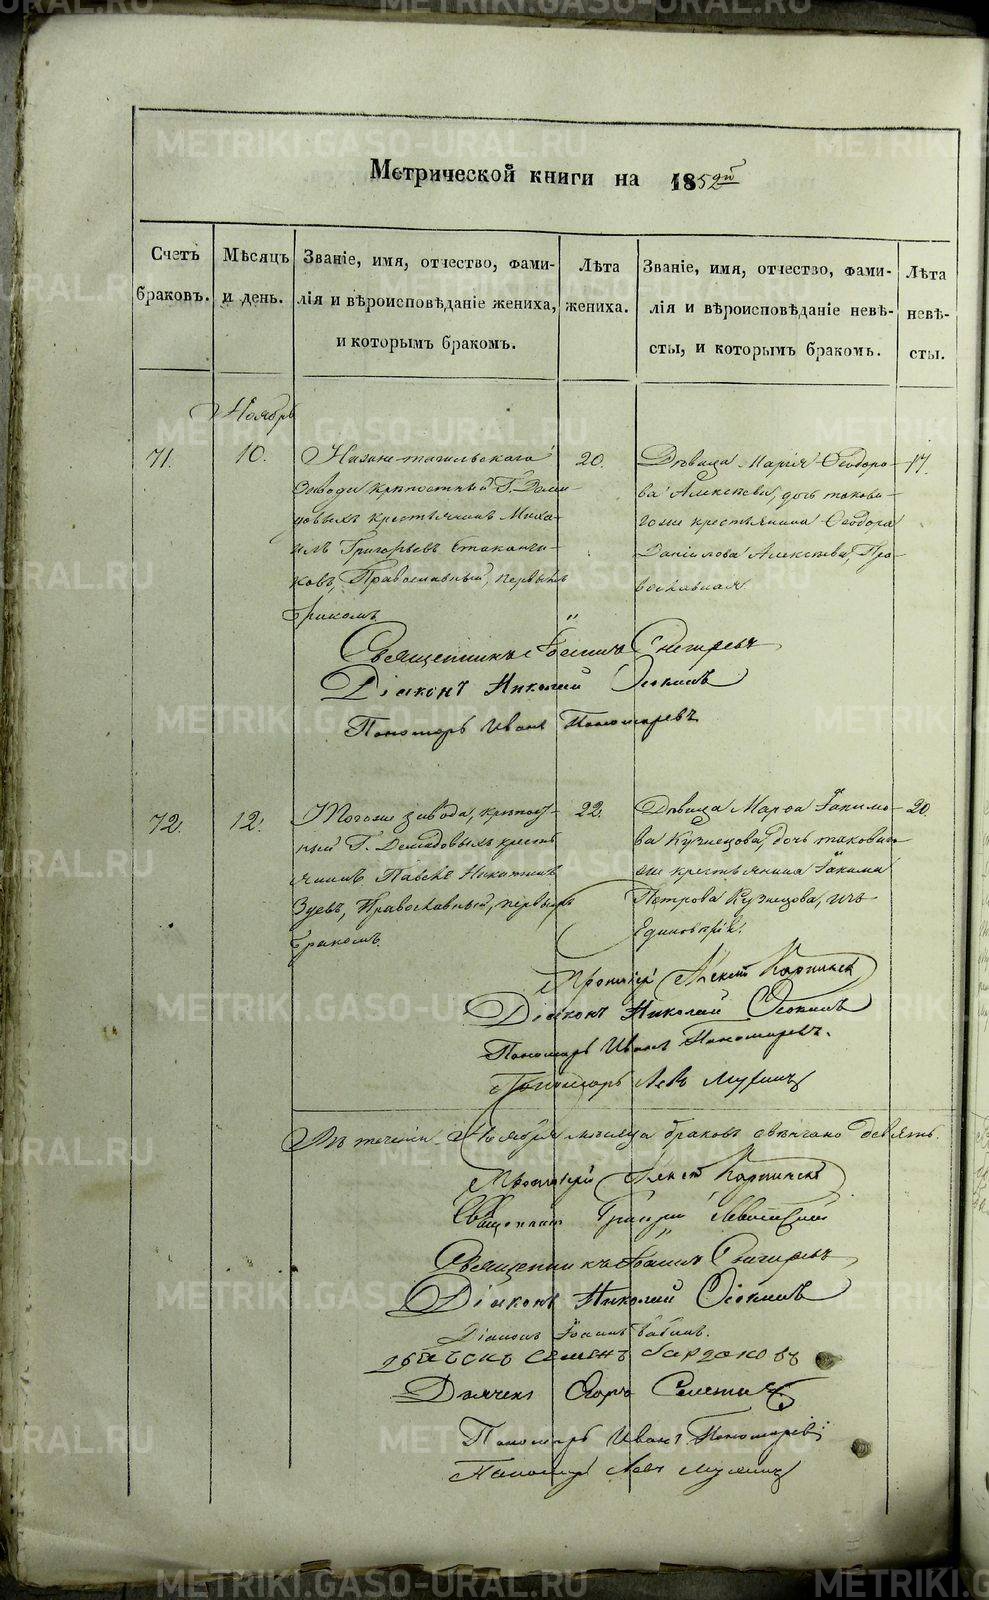 METRIKI.GASO-URAL.RU
Метрической книги на 1852й
Счетъ браковъ.
Мѣсяцъ и день.
Званіе, имя, отчество, фами-
лія и вѣроисповѣданіе жениха,
и которымъ бракомъ.
Лѣта жениха.
Званіе, имя, отчество, фами-
лія и вѣроисповѣданіе невѣ-
сты, и которымъ бракомъ.
Лѣта невѣ-
сты.
Ноябрь
71.
10.
Нижне-тагильскаго
завода крѣпостный Г. Деми
довыхъ крестьянинъ Миха-
илъ Григорьевъ Стаканчи-
ковъ, Православный, первымъ
бракомъ
20.
Дѣвица Марія Ѳеодоро-
ва Алексѣева, дочь таково-
гоже крестьянина Ѳеодора
Даніилова Алексѣева, Пра-
вославная
17.
Священникъ Іоаннъ Снегиревъ
Діаконъ Николай Осокинъ
Пономарь Иванъ Пономаревъ
72.
12.
Тогоже завода, крѣпост
ный Г. Демидовыхъ кресть
янинъ Павелъ Никитинъ
Зуевъ, Православный, первымъ
бракомъ.
22.
Дѣвица Марѳа Іакимо-
ва Кузнецова, дочь таковаго
же крестьянина Іакима
Петрова Кузнецова, изъ
Единовѣрія.
20.
Протоіерей Алексѣй Карпинскій
Діаконъ Николай Осокинъ
Пономарь Иванъ Пономаревъ.
Пономарь Левъ
Въ теченіи Ноября мѣсяца браковъ свѣнчано девять.
Протоіерей Алексѣй Карпинскій
Священникъ Григорій
Священникъ Іоаннъ Снигиревъ
Діаконъ Николай Осокинъ
Діаконъ Іоаннъ Бабинъ.
Семенъ
Дьячекъ Егоръ
Пономарь Иванъ Пономаревъ
Пономарь Левъ